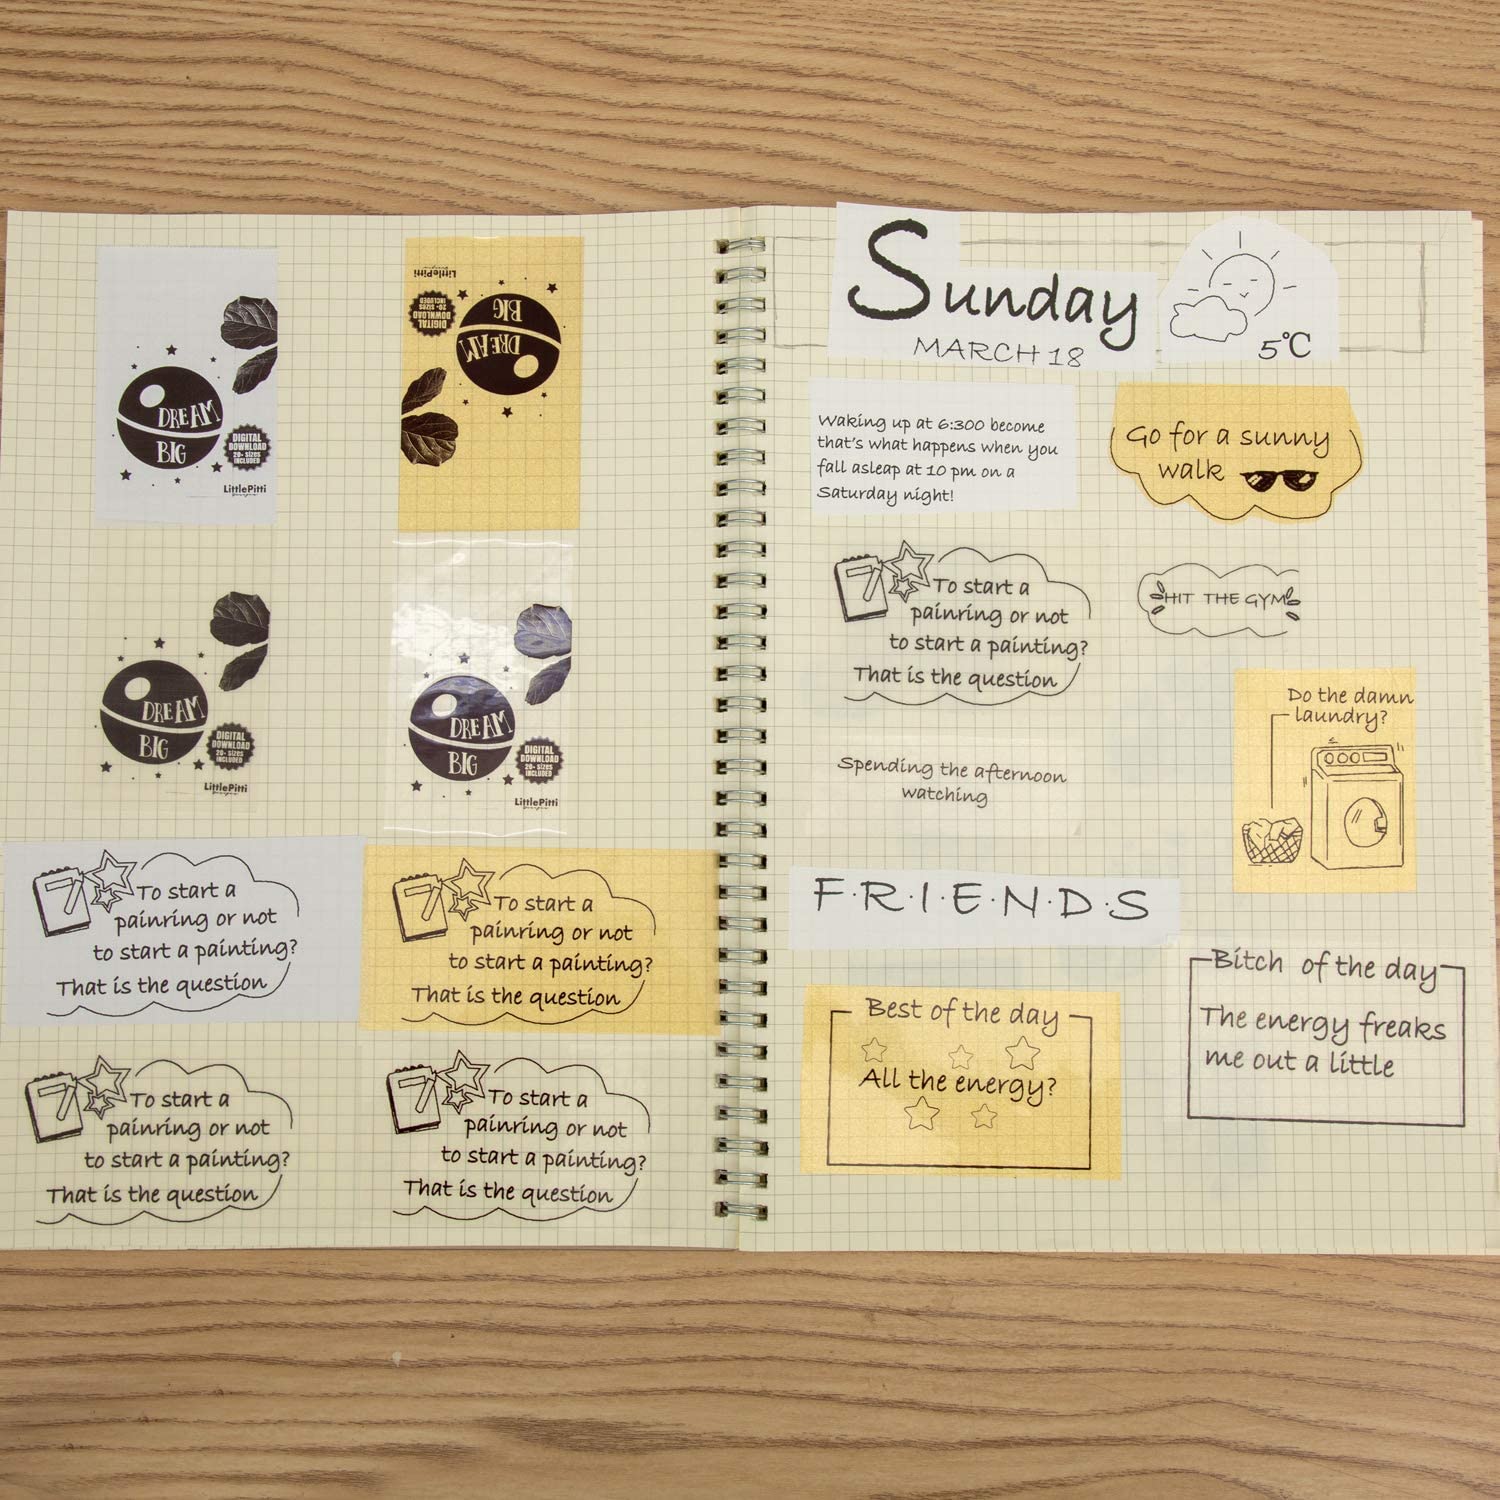 DREAM
BIG
DIGITAL
DOWNLOAD
20+ sizes
INCLUDED
LittlePitti
DREAM
BIG
DIGITAL
DOWNLOAD
20+ sizes
INCLUDED
LittlePitti
DREAM
BIG
DIGITAL
DOWNLOAD
20+ sizes
INCLUDED
LittlePitti
DREAM
BIG
DIGITAL
DOWNLOAD
20+ sizes
INCLUDED
LittlePitti
7
To start a
painring or not
to start a painting?
That is the question
7
To start a
painring or not
to start a painting?
That is the question
7
To start a
painring or not
to start a painting?
That is the question
7
To start a
painring or not
to start a painting?
That is the question
Sunday
MARCH 18
5°C
Waking up at 6:300 become
that's what happens when you
fall asleap at 10 pm on a
Saturday night!
Go for a sunny
walk
7
To start a
painring or not
to start a painting?
That is the question
HIT THE GYM
Do the damn
laundry?
Spending the afternoon
watching
F·R·I·E·N·D·S
Best of the day
All the energy?
Bitch of the day
The energy freaks
me out a little